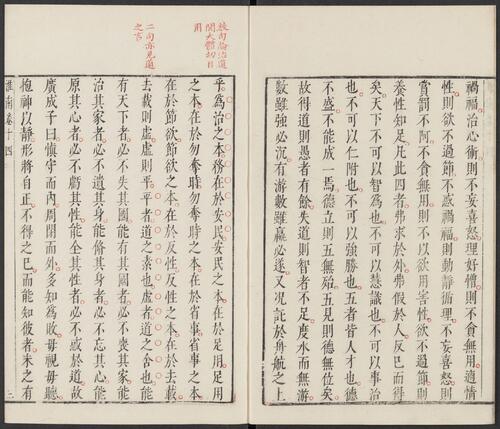 性則欲不過節不惑禍福則動靜循理不妄喜怒則
禍福治心術則不妄喜怒理好憎則不貪無用適情
賞罰不阿不貪無用則不以欲用害性欲不過節則
養性知足凡此四者弗求於外弗假於人反己而得
矣天下不可以智為也不可以慧識也不可以事治
也不可以仁附也不可以強勝也五者皆人才也德
不盛不能成一焉德立則五無殆五見則德無位矣
故得道則愚者有餘失道則智者不足度水而無游
數雖強必沉有游數雖羸必遂又況託於舟航之上
句論治道
關大體切日
用
二句亦見道
之言
乎為治之本務在於安民安民之本在於足用足用
之本在於勿奪時勿奪時之本在於省事省事之本
在於節欲節欲之本在於反性反性之本在於去載
去載則虛虛則平平者道之素也虛者道之舍也能
有天下者必不失其國能有其國者必不喪其家能
治其家者必不遺其身能脩其身者必不忘其心能
原其心者必不虧其性能全其性者必不惑於道故
廣成子曰慎守而內周閉而外多知為敗毋視毋聽
抱神以靜形將自正不得之己而能知彼者未之有
淮南卷十四 三